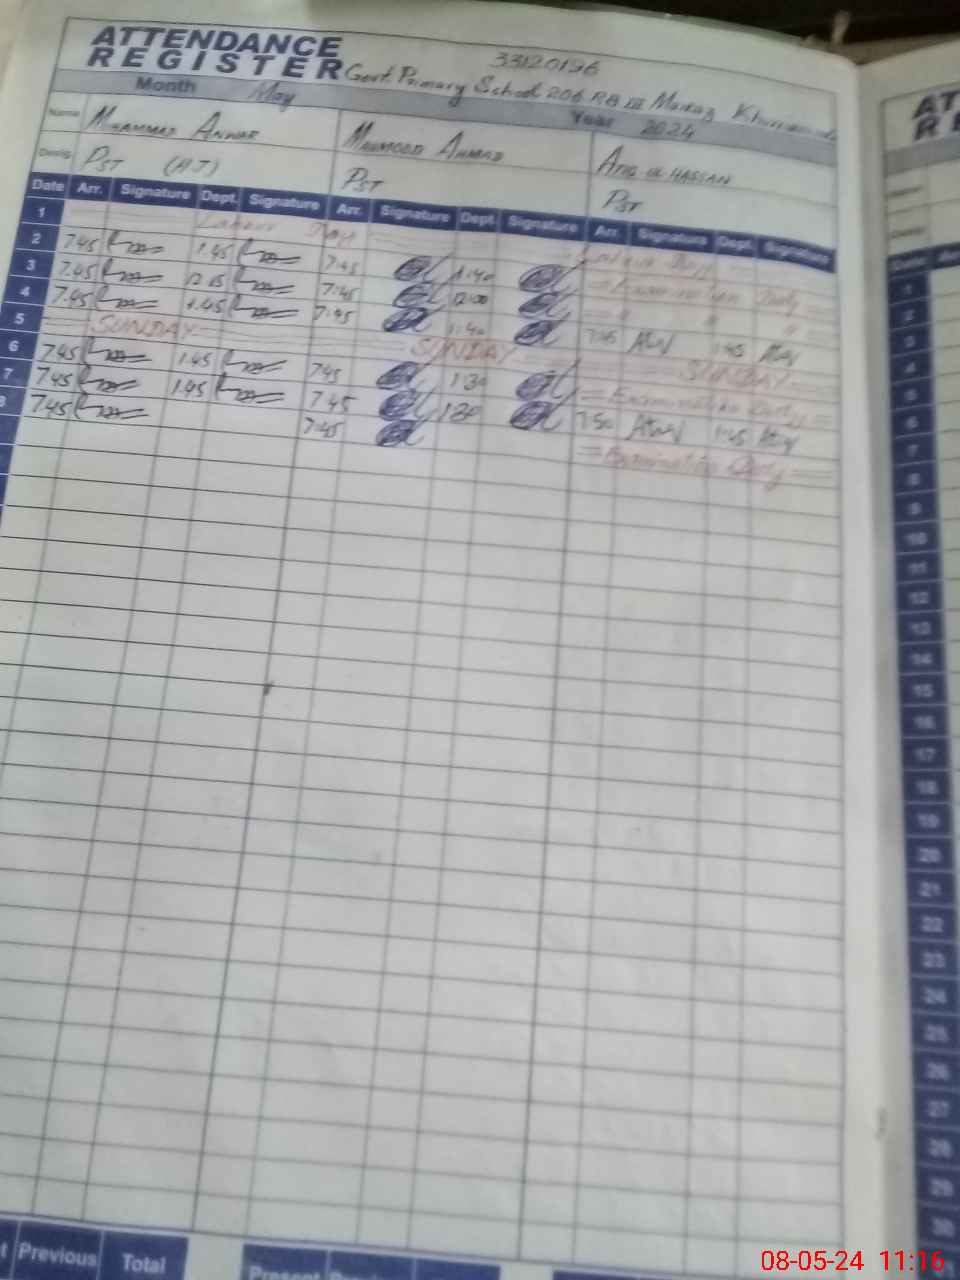 ATTENDANCE
REGISTER
33120196
Govt. Primary School 206 RB III Markaz
Month May Year 2024
Name Muhammad Anwar Mahmood Ahmad Atiq ul Hassan
Desig. PST (HT) PST PST
Date Arr. Signature Dept. Signature Arr. Signature Dept. Signature Arr. Signature Dept. Signature
1 Labour Day Labour Day
2 7.45 1.45 7:45 1:40 Examination Duty
3 7.45 12.15 7:45 12:00 " " "
4 7.45 1.45 7:45 1:40 7:45 1:45
5 SUNDAY SUNDAY SUNDAY
6 7.45 1.45 7:45 1:30 Examination Duty
7 7.45 1.45 7:45 1:30 7:50 1:45
8 7.45 7:45 Examination Duty
Previous Total
Present
AT
RE
Date
1
2
3
4
5
6
7
8
9
10
11
12
13
14
15
16
17
18
19
20
21
22
23
24
25
26
27
28
29
30
08-05-24 11:16